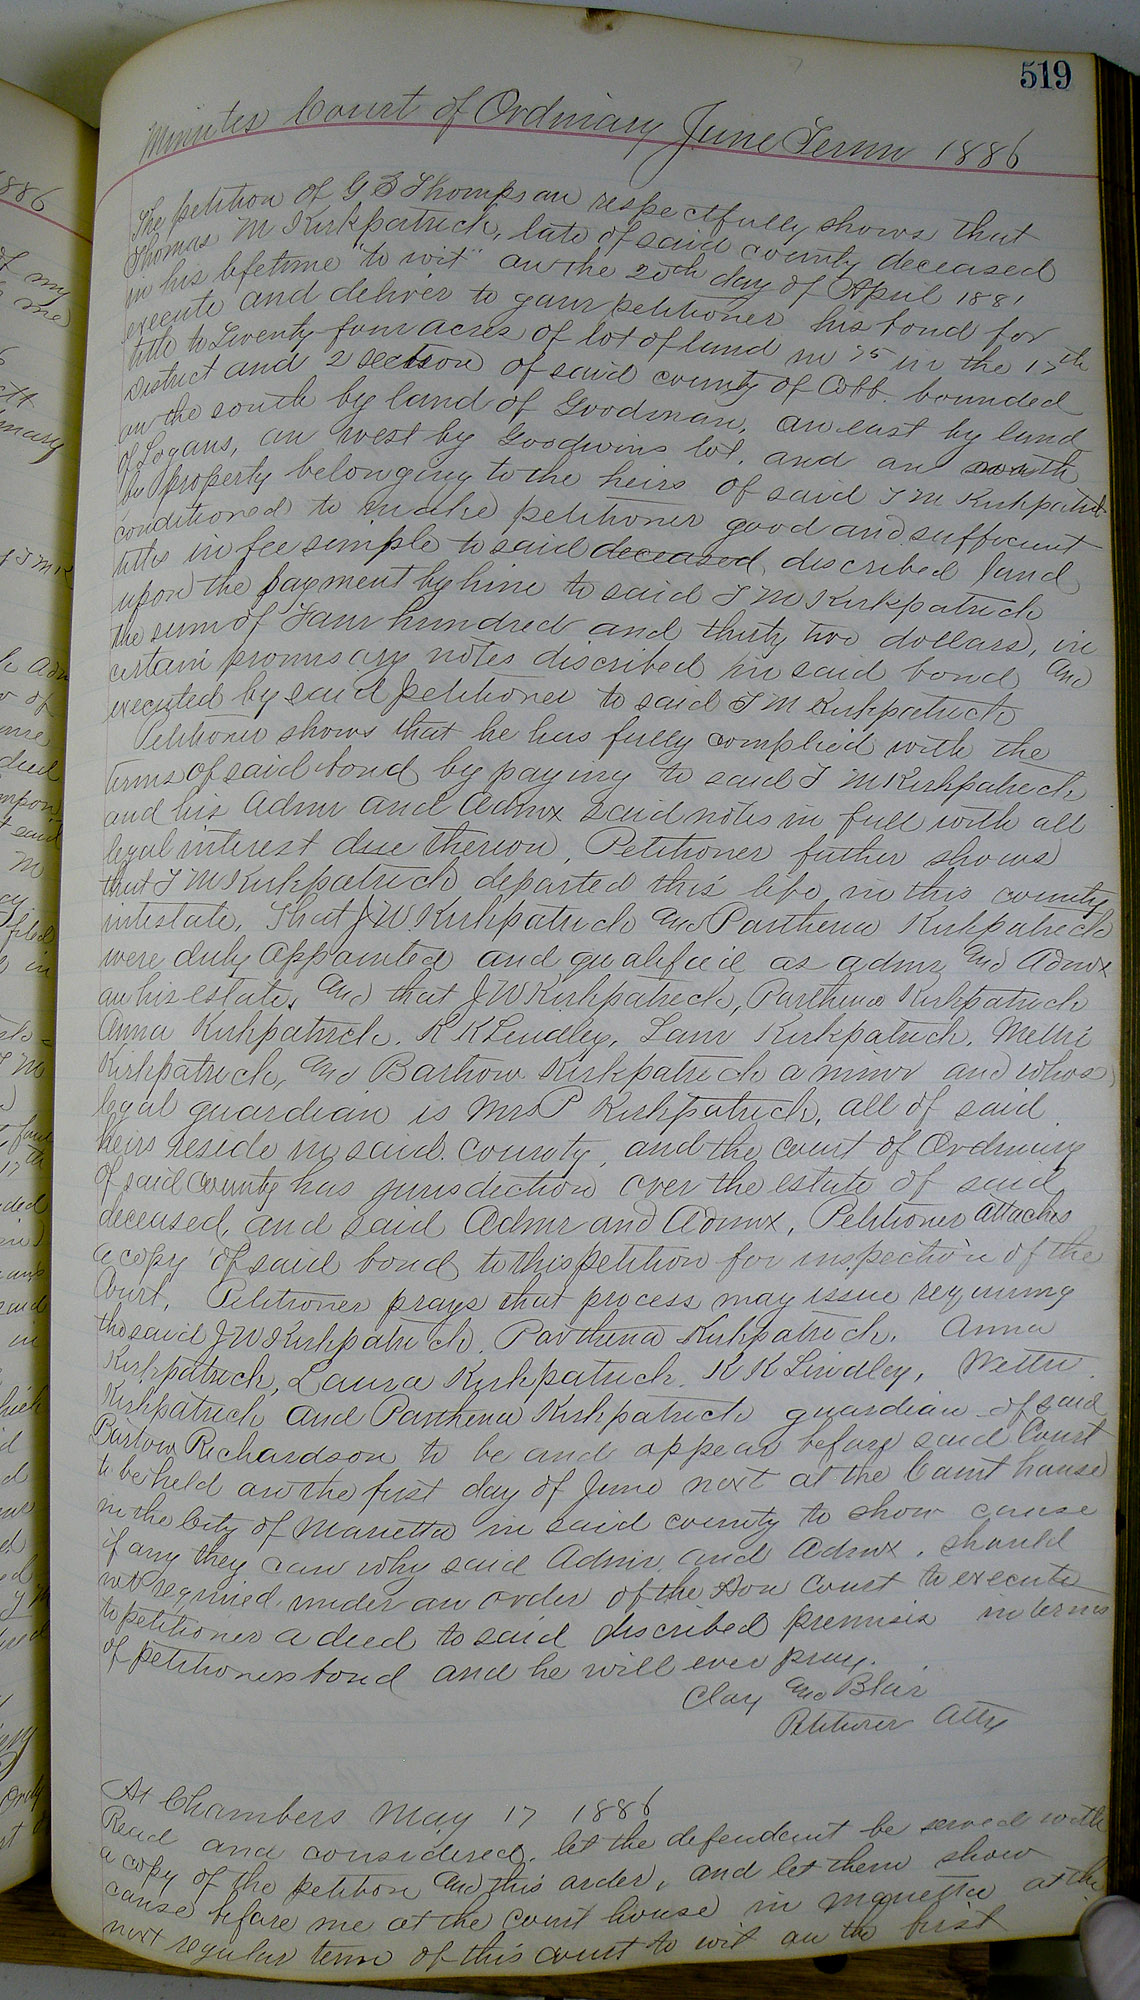 519
Minutes Court of Ordinary June Term 1886
The petition of G B Thompson respectfully shows that
Thomas M Kirkpatrick, late of said county deceased
in his lifetime "to wit" on the 20th day of April 1881
execute and deliver to your petitioner his bond for
title to Twenty four acres of lot of land no 75 in the 17th
District and 2 section of said county of Cobb. bounded
on the south by land of Goodman, on east by land
of Logans, on west by Goodwins lot, and on north
by property belonging to the heirs of said T M Kirkpatrick
conditioned to make petitioner good and sufficient
titles in fee simple to said deceased, discribed land
upon the payment by him to said T M Kirkpatrick
the sum of Four hundred and thirty two dollars, in
certain promisary notes discribed in said bond and
executed by said petitioner to said T M Kirkpatrick
Petitioner shows that he has fully complied with the
terms of said bond by paying to said T M Kirkpatrick
and his Admr and Admx said notes in full with all
legal interest due thereon, Petitioner futher shows
that T M Kirkpatrick departed this life in this county
intestate, That J W Kirkpatrick and Parthena Kirkpatrick
were duly appointed and qualified as admr and Admx
on his estate, and that J W Kirkpatrick, Parthena Kirkpatrick
Anna Kirkpatrick, R K Lindley, Laur Kirkpatrick, Mettie
Kirkpatrick, and Bartow Kirkpatrick a minor and whos
legal guardian is Mrs P Kirkpatrick, all of said
heirs reside in said county, and the court of Ordinary
of said County has jurisdiction over the estate of said
deceased, and said Admr and Admx, Petitioner attaches
a copy of said bond to this petition for inspection of the
Court, Petitioner prays that process may issue requiring
the said J W Kirkpatrick, Parthena Kirkpatrick, Anna
Kirkpatrick, Laura Kirkpatrick, R K Lindley, Mettie
Kirkpatrick and Parthena Kirkpatrick guardian of said
Bartow Richardson to be and appear before said Court
to be held on the first day of June next at the Court house
in the City of Marietta in said county to show cause
if any they can why said Admr and Admx, should
not required under an order of the Hon Court to execute
to petitioner a deed to said discribed premisis in terms
of petitioners bond and he will ever pray.
Clay and Blair
Petitioner Atty
At Chambers May 17 1886
Read and considered, let the defendant be served with
a copy of the petition and this order, and let them show
cause before me at the court house in Marietta at the
next regular term of this court to wit on the first